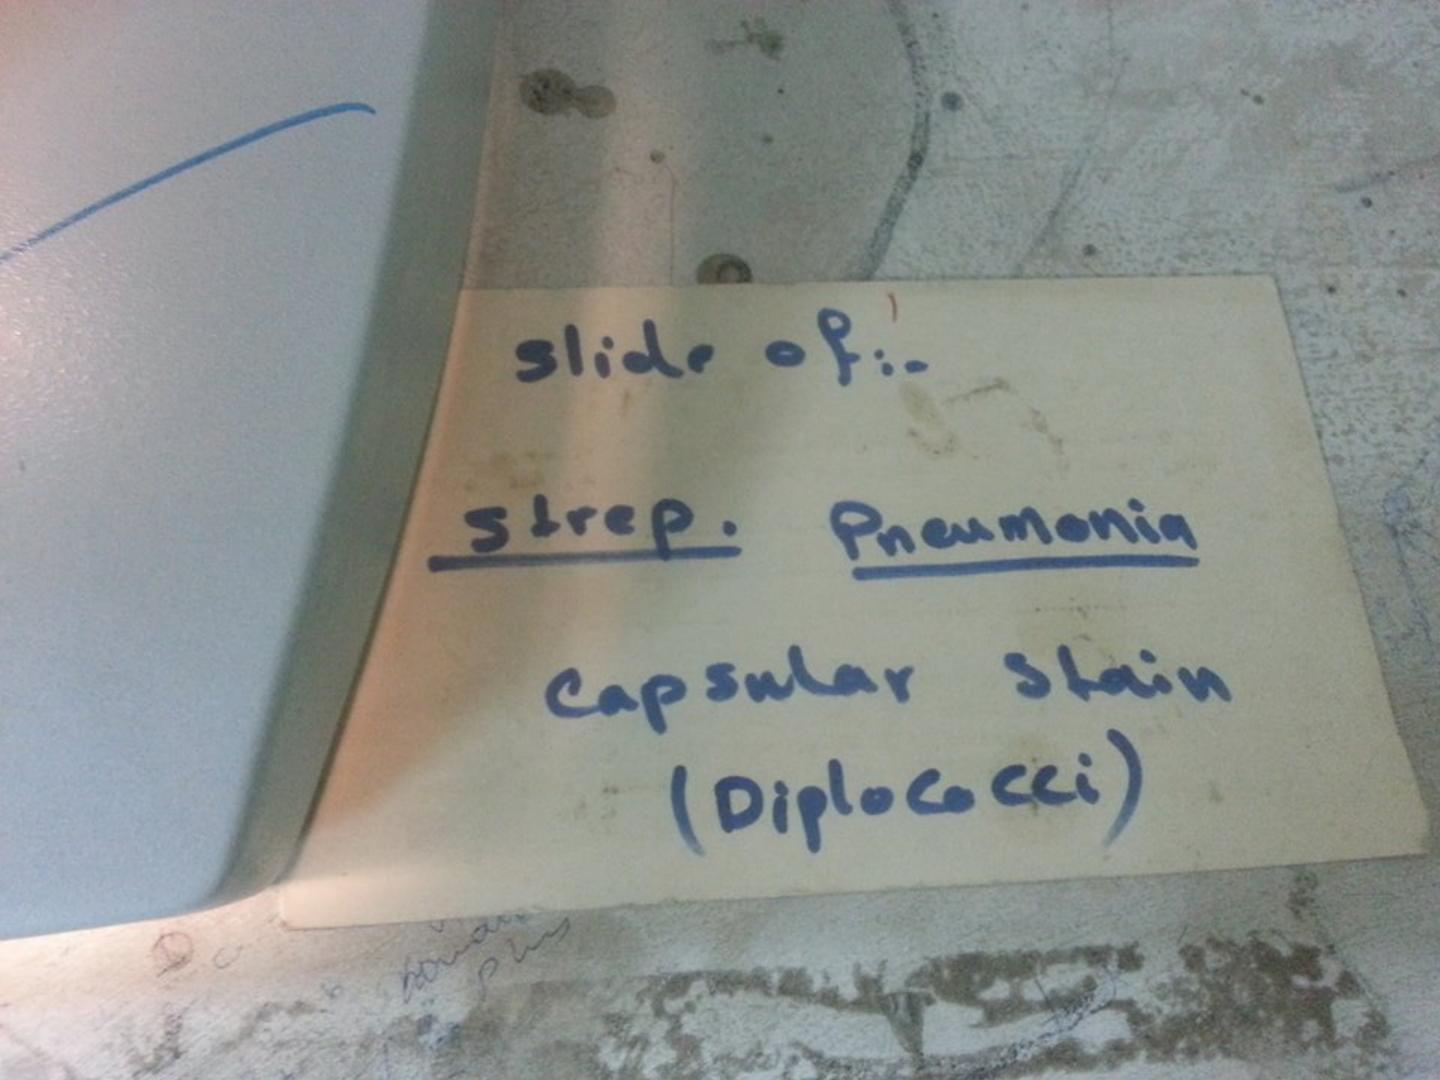 slide of:-
strep. Pneumonia
Capsular stain
(Diplococci)